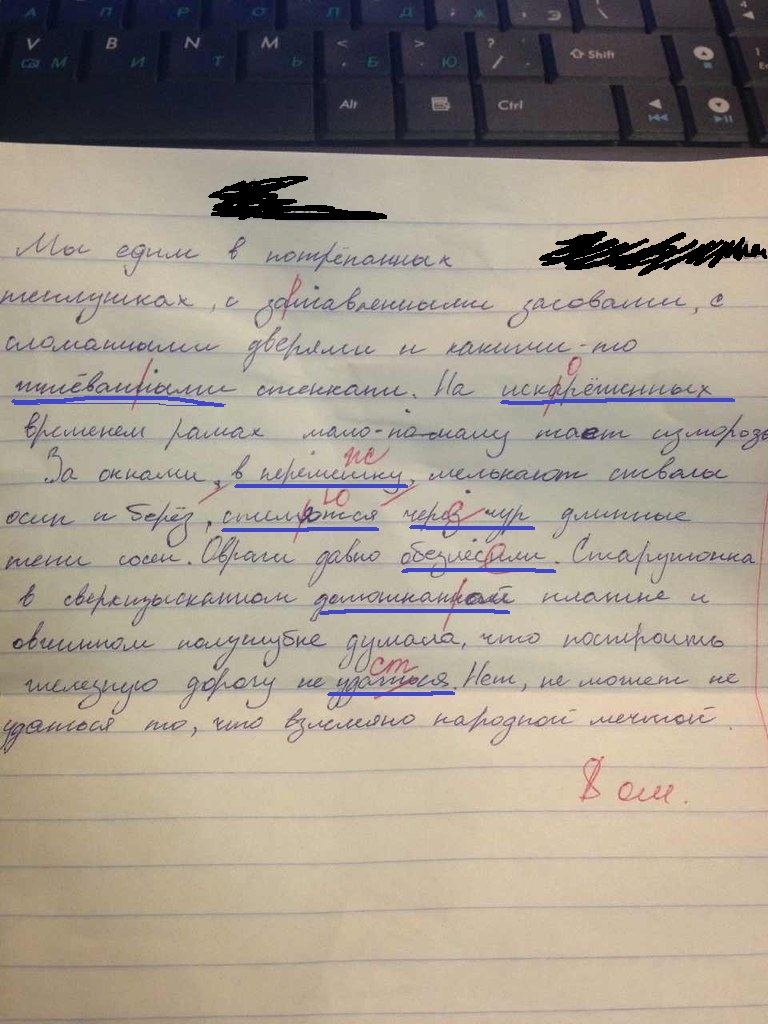 V B N M < > ? ⇧ Shift
М И Т Ь , Б . Ю /
Alt Ctrl
Мы едим в потрёпанных
теплушках, с заржавленными засовами, с
сломанными дверями и какими-то
плёванными стенками. На искорёженных
временем рамах мало-по-малу тает изморозь
За окнами, в перемешку, мелькают стволы
пс
осин и берёз, стелются через чур длинные
ю
тени сосен. Овраги давно обезлесели. Старушонка
в сверхизысканном домотканной платье и
овчинном полушубке думала, что построить
железную дорогу не удаться. Нет, не может не
ст
удаться то, что взлеляно народной мечтой.
8 ош.